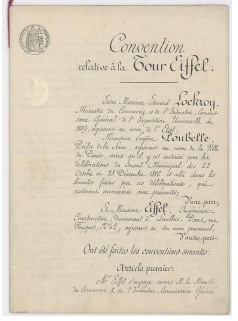 Convention
relative à la Tour Eiffel.
Entre Monsieur Edouard Lockroy,
Ministre du Commerce et de l'Industrie, Commis-
saire Général de l'Exposition Universelle de
1889, agissant au nom de l'Etat,
Monsieur Eugène Poubelle,
Préfet de la Seine, agissant au nom de la Ville
de Paris, ainsi qu'il y est autorisé par les
délibérations du Conseil Municipal des 22
Octobre et 28 Décembre 1886 et cela dans les
limites fixées par ces délibérations, qui
resteront annexées aux présentes,
D'une part;
Et Monsieur Eiffel, Ingénieur-
Constructeur, demeurant à Levallois-Perret, rue
Fouquet, N°42, agissant en son nom personnel,
D'autre part.
Ont été faites les conventions suivantes:
Article premier.
Mr. Eiffel s'engage envers M. le Minist
du Commerce & de l'Industrie, Commissaire Général